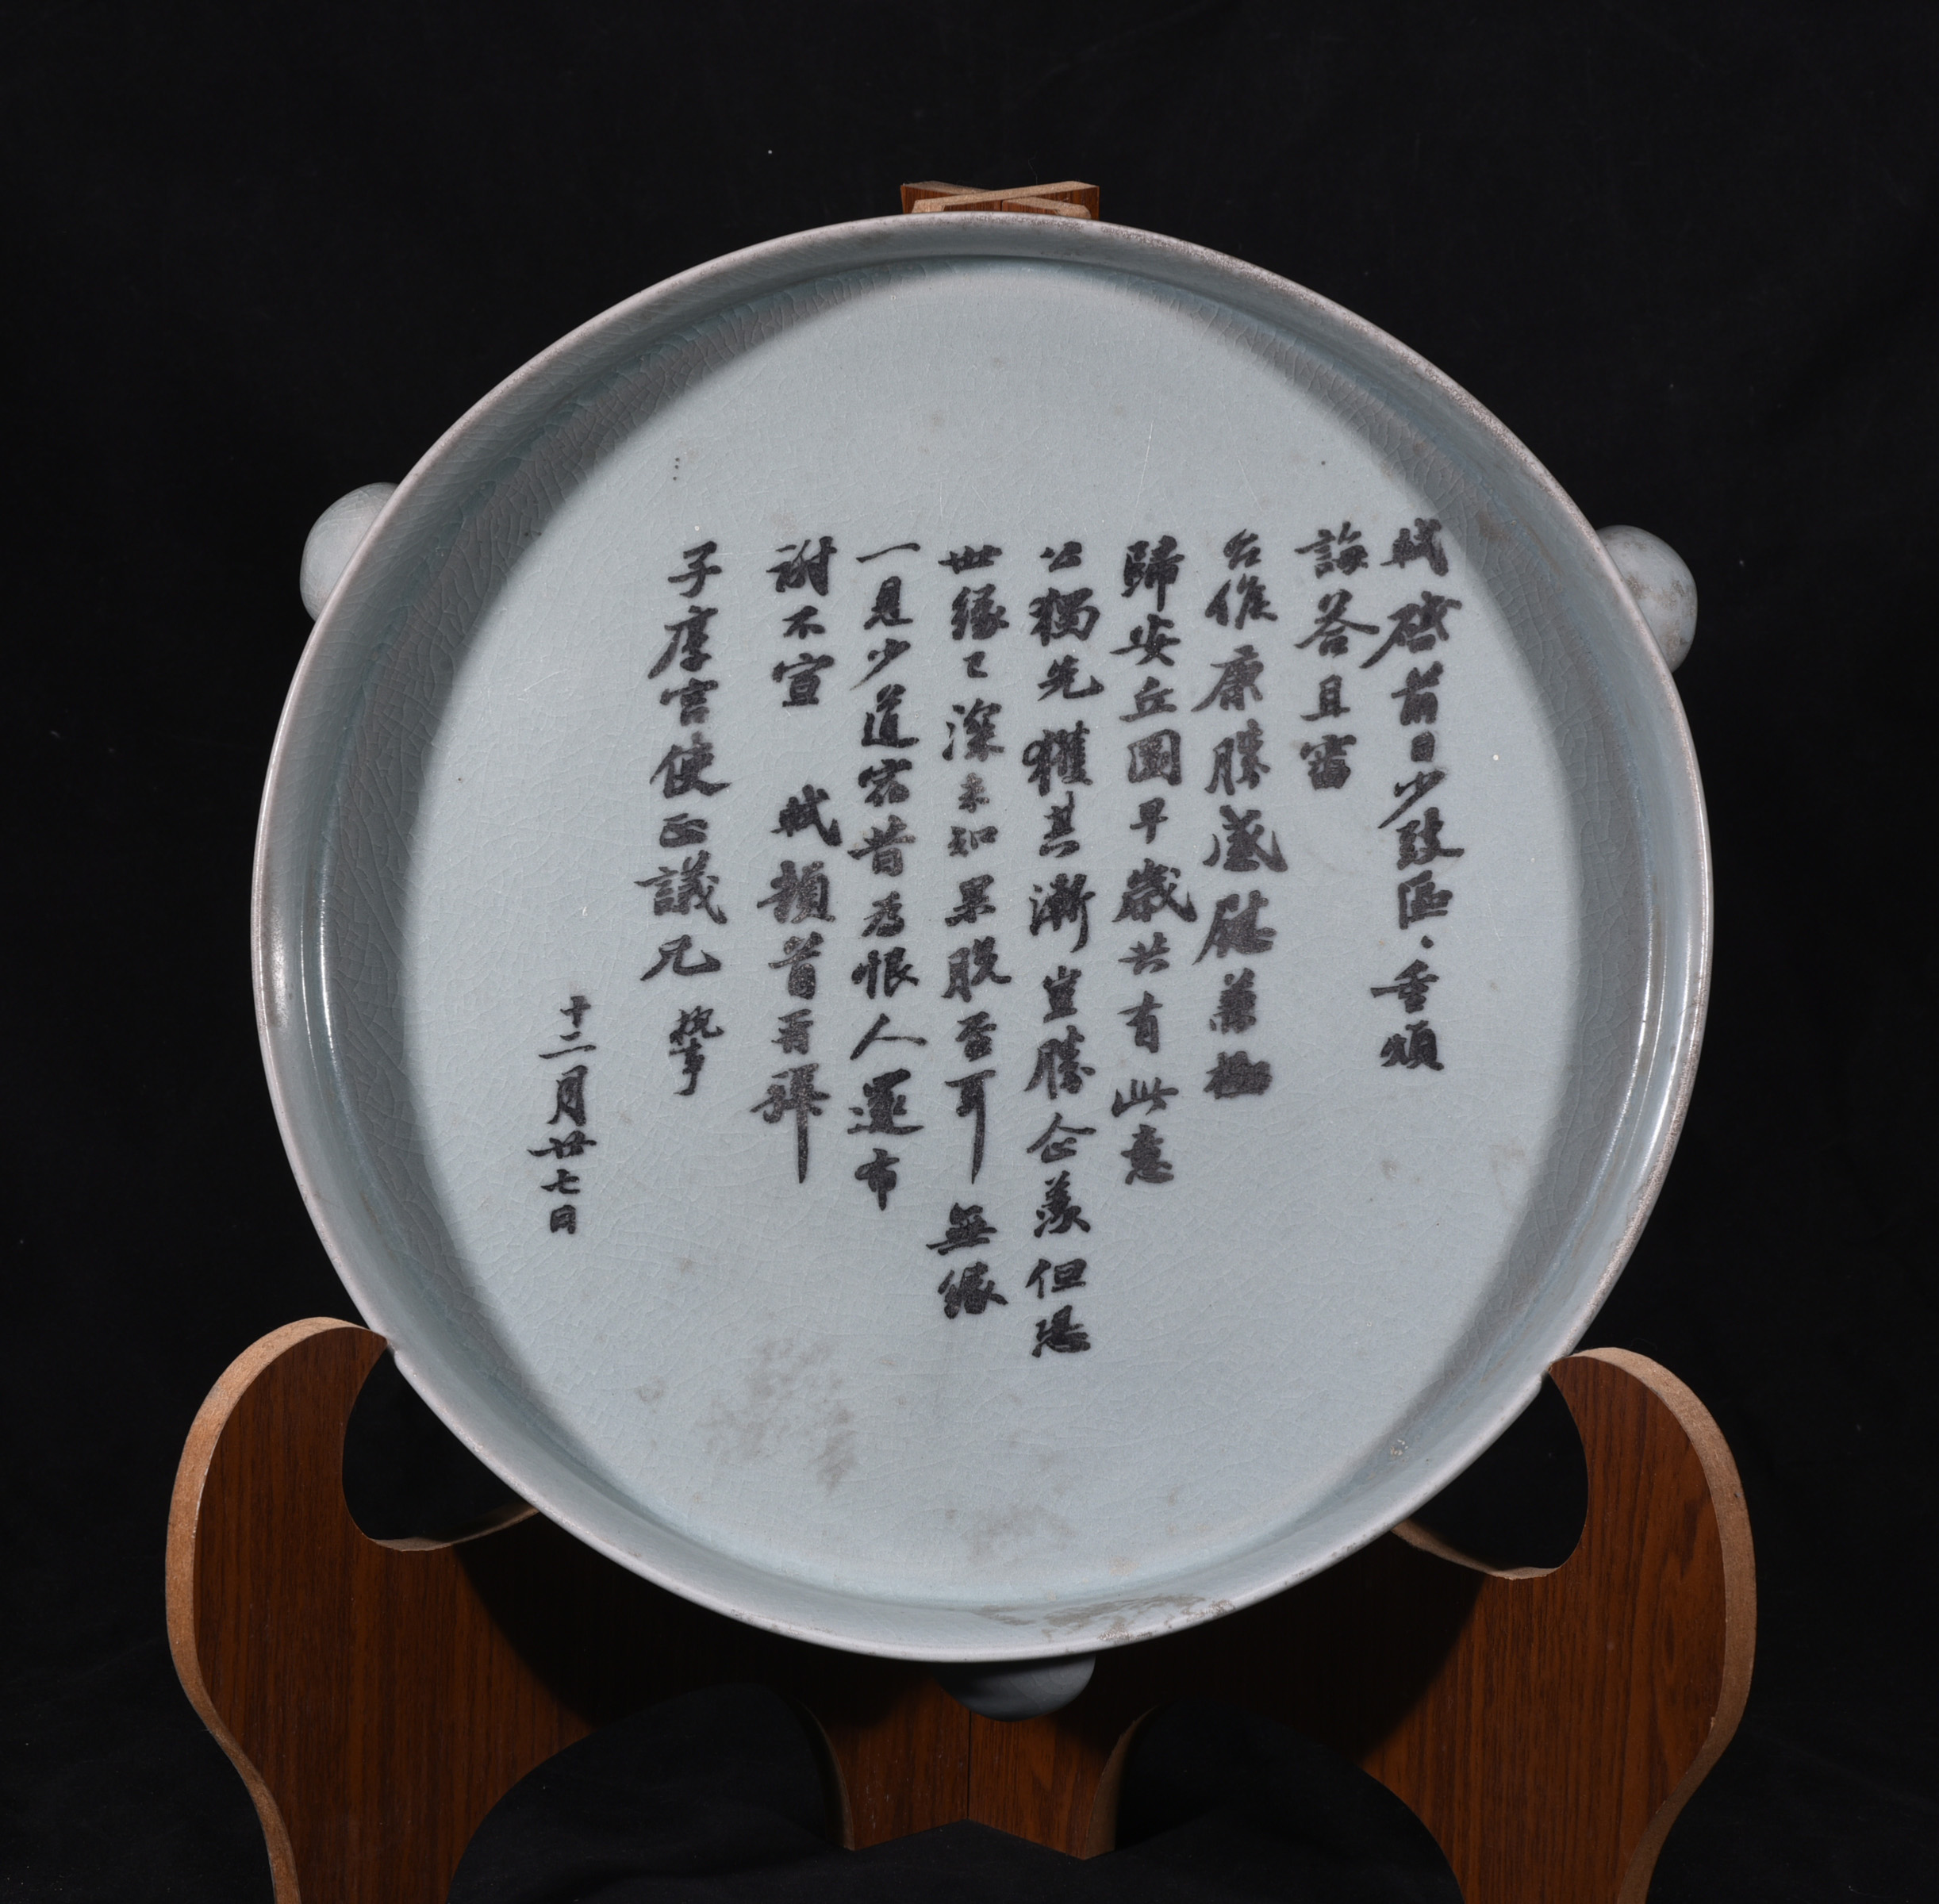 軾啓前日少致區、重煩
誨答且審
台候康勝感慰兼極
歸安丘園早歲共有此意
公獨先獲其漸豈勝企羨但恐
世緣已深未知果脫否耳無緣
一見少道宿昔為恨人還布
謝不宣 軾頓首再拜
子厚宮使正議兄執事
十二月廿七日